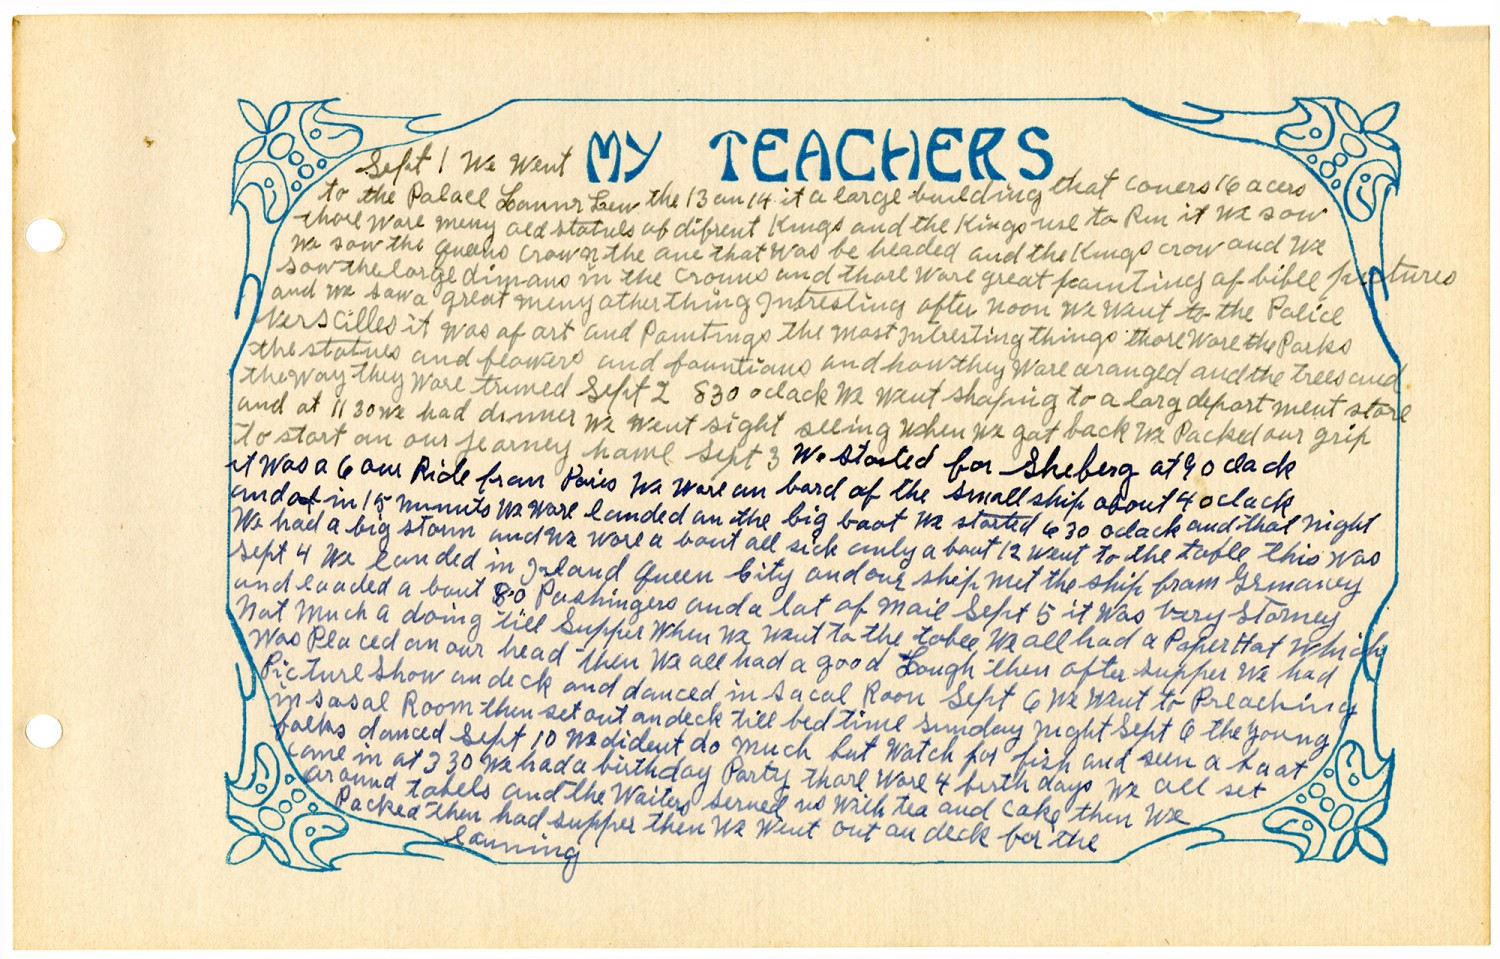 MY TEACHERS
Sept 1 We Went
to the Palace Lounr Leu the 13 an 14 it a large building that coners 16 acers
thore Wore meny oed statues of difrent Kings and the Kings use to Run it We sow
We sow the queens Crown the one that Was be headed and the Kings crow and We
sow the large dimans in the crowns and thare Ware great paintings of bible pictures
and We sow a great meny other thing Intresting after noon We Went to the Police
Verscilles it Was of art and Paintings the most Intresting things thore Wore the Parks
the statues and flowers and fountians and how they Wore aranged and the trees and
the Way they Wore trimed Sept 2 830 oclack We Went shoping to a larg depart ment store
and at 11 30 We had dinner We Went sight seeing When We got back We Packed our grip
to start on our Jearney hame Sept 3 We started for Sheberg at 9 o clack
it Was a 6 our Ride from Paris We Ware on bard of the small ship about 4 oclack
and at in 15 minuits We Wore landed on the big boat We started 6 30 oclack and that night
We had a big storm and We Wore a bout all sick only a bout 12 Went to the table this Was
Sept 4 We landed in Irland Queen City and our ship met the ship from Grmaney
and loaded a bout 80 Pashingers and a lot of mail Sept 5 it Was Very Stormey
Not Much a doing till Supper When We Went to the tabel We all had a Paper Hat Which
Was Placed on our head then We all had a good Lough then after supper We had
Picture Show on deck and danced in Sacal Roon Sept 6 We Went to Preaching
in sasal Room then set out on deck till bed time Sunday night Sept 6 the young
folks danced Sept 10 We dident do much but Watch for fish and seen a boat
come in at 3 30 We had a birthday Party thare Wore 4 birth days We all set
around tabels and the Waiters served us With tea and cake then We
Packed then had supper then We Went out on deck for the